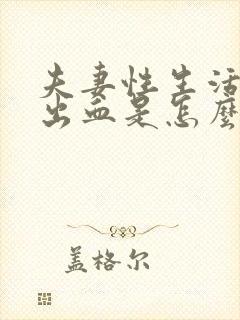 夫妻性生活
出血是怎麽
盖格尔